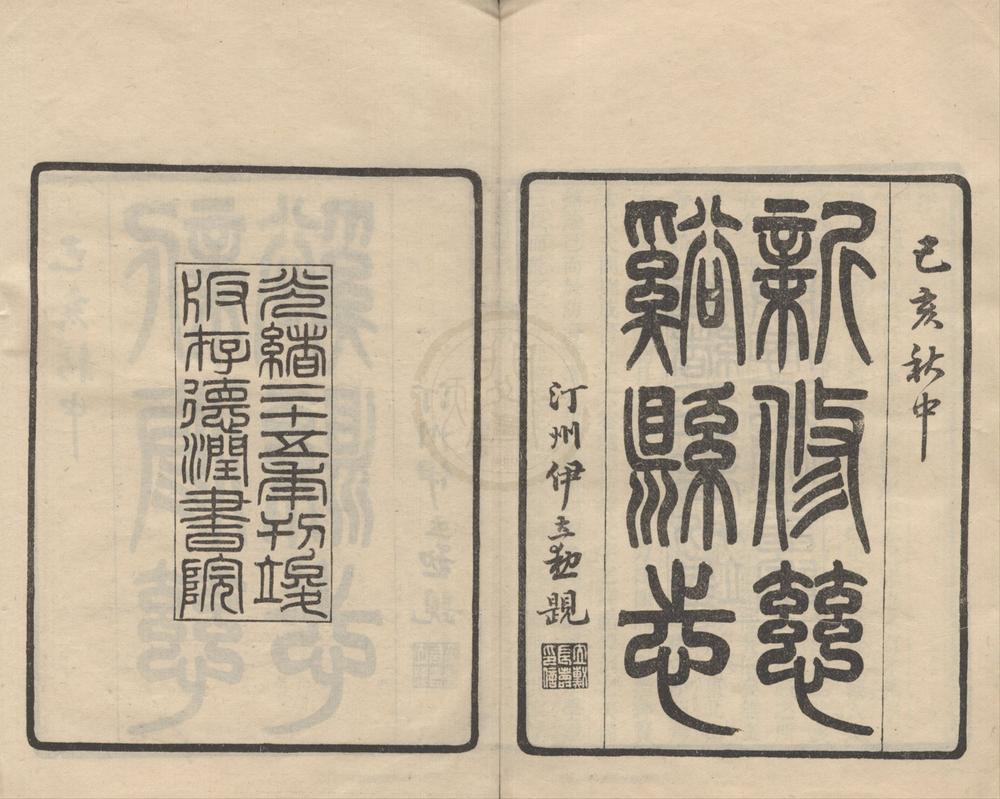 己亥秋中
新修慈
谿縣志
汀州伊立勳題
光緒二十五年刊竣
版存德潤書院